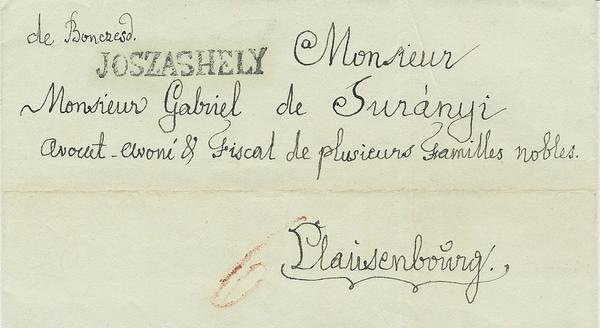 de Bonczesd.
JOSZASHELY
Monsieur
Monsieur Gabriel de Surányi
Avocat-Avoué & Fiscal de plusieurs Familles nobles.
Clausenbourg.
6